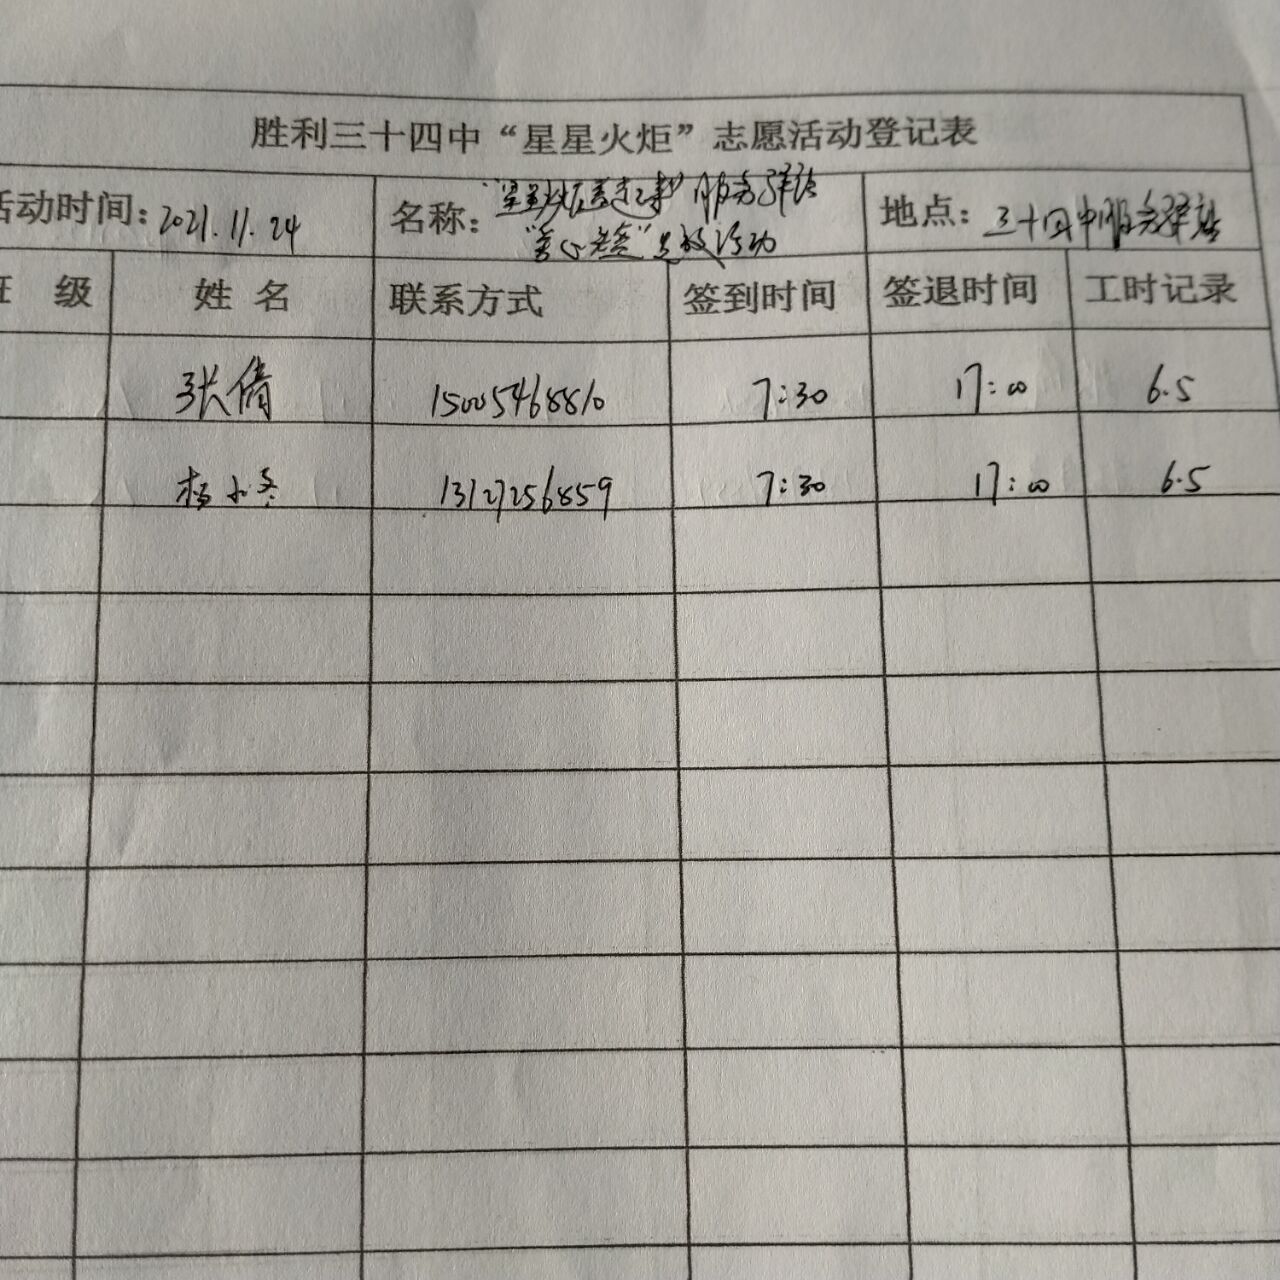 胜利三十四中“星星火炬”志愿活动登记表
活动时间：2021.11.24 名称：“星星火炬 服务驿站 地点：三十四中服务驿站
活动
班 级 姓 名 联系方式 签到时间 签退时间 工时记录
张倩 15005468810 7:30 17:00 6.5
杨小冬 13127256859 7:30 17:00 6.5